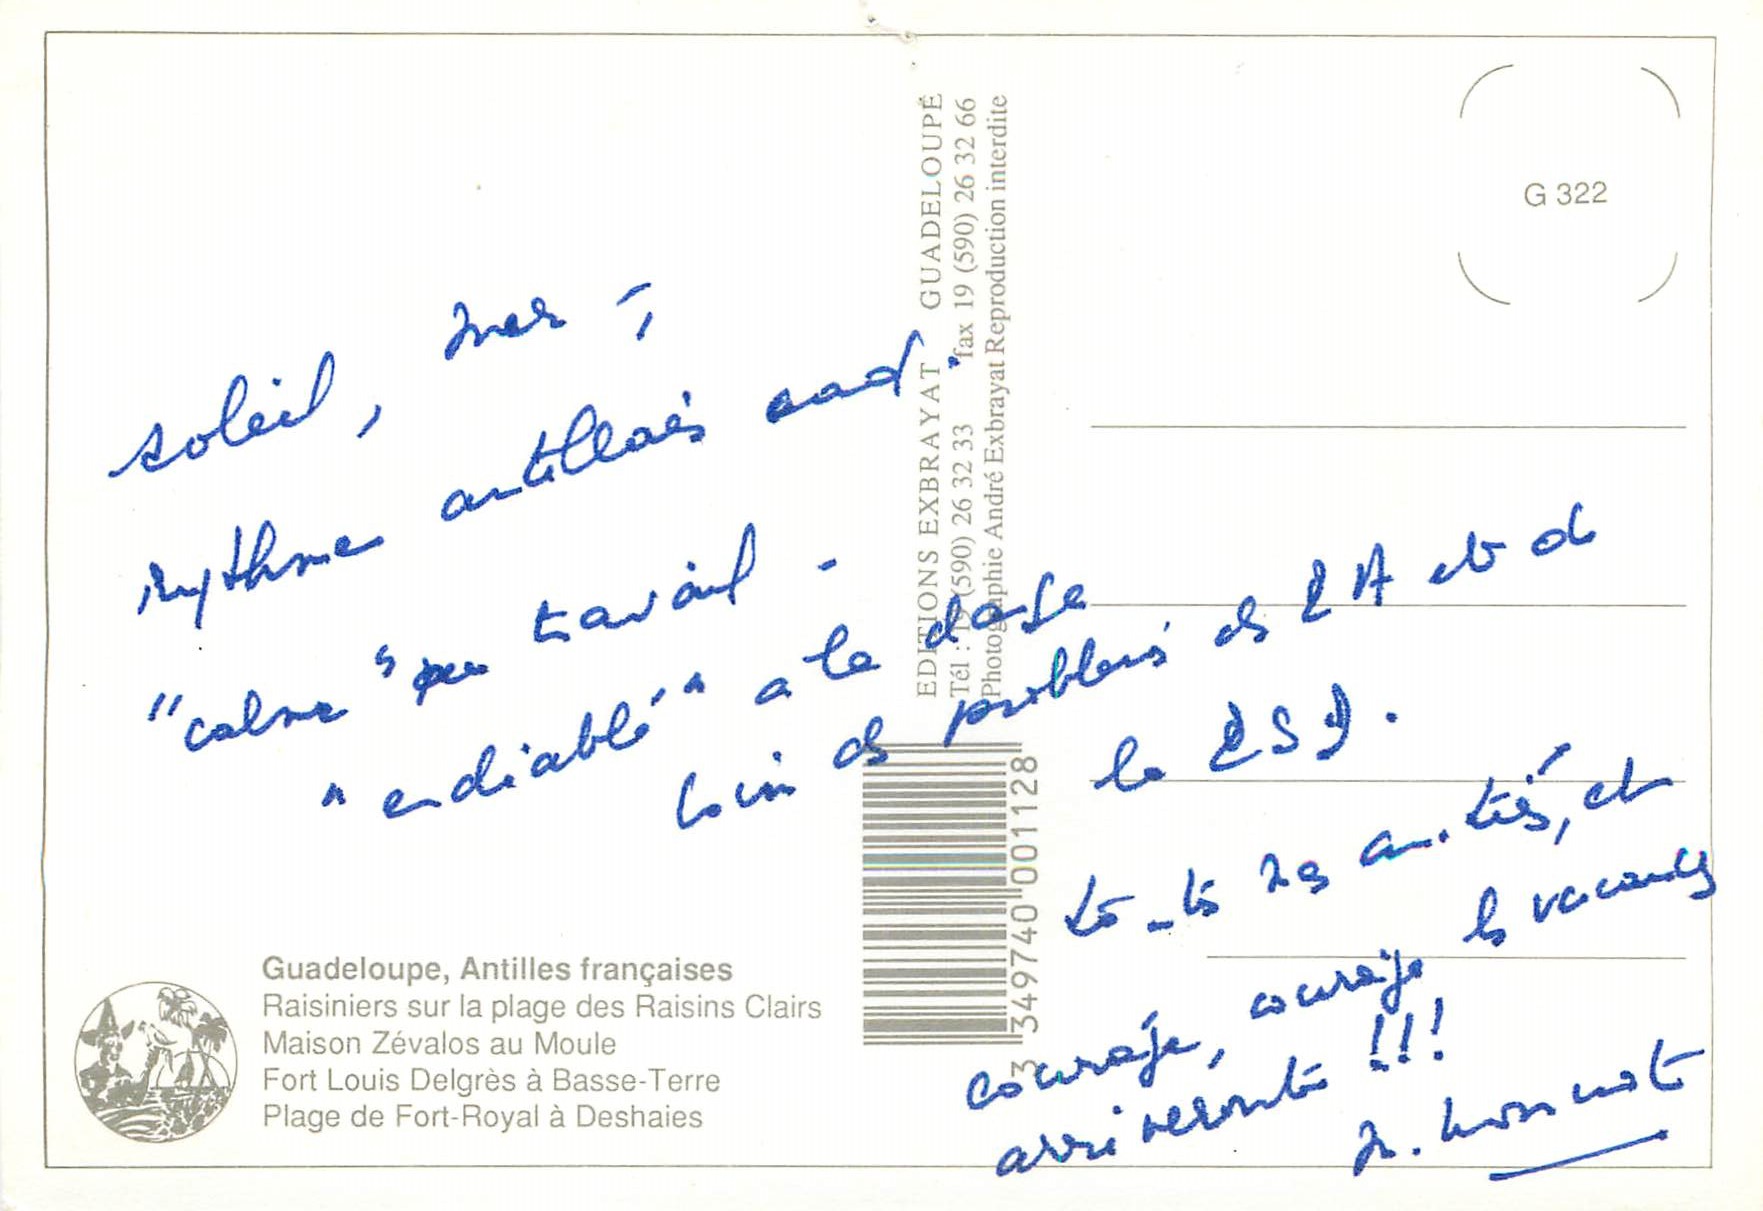 soleil, mer -,
rythme antillais cad.
"calme" peu travail -
"endiablé" a la danse
loin de problemes de RA et de
la RSD.
toutes mes amitiés, et
courage, courage les vacances
arriveront !!!
EDITIONS EXBRAYAT GUADELOUPE
Tél : 19 (590) 26 32 33 fax 19 (590) 26 32 66
Photographie André Exbrayat Reproduction interdite
G 322
3 349740 001128
Guadeloupe, Antilles françaises
Raisiniers sur la plage des Raisins Clairs
Maison Zévalos au Moule
Fort Louis Delgrès à Basse-Terre
Plage de Fort-Royal à Deshaies